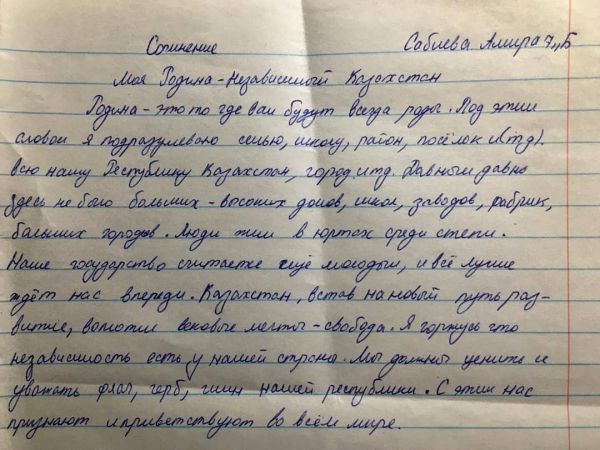 Сочинение Сабиева Амира 7„Б
Моя Родина-Независимый Казахстан
Родина - это то где вам будут всегда рады. Под этим
словом я подразумеваю семью, школу, район, посёлок и(тд).
всю нашу Республику Казахстан, город итд. Давным давно
здесь не было больших - высоких домов, школ, заводов, фабрик,
больших городов. Люди жили в юртах среди степи.
Наше государство считается ещё молодым, и всё лучшее
ждёт нас впереди. Казахстан, встав на новый путь раз-
витие, воплотил вековые мечты - свобода. Я горжусь что
независимость есть у нашей страны. Мы должны ценить и
уважать флаг, герб, гимн нашей республики. С этим нас
признают и приветствуют во всём мире.